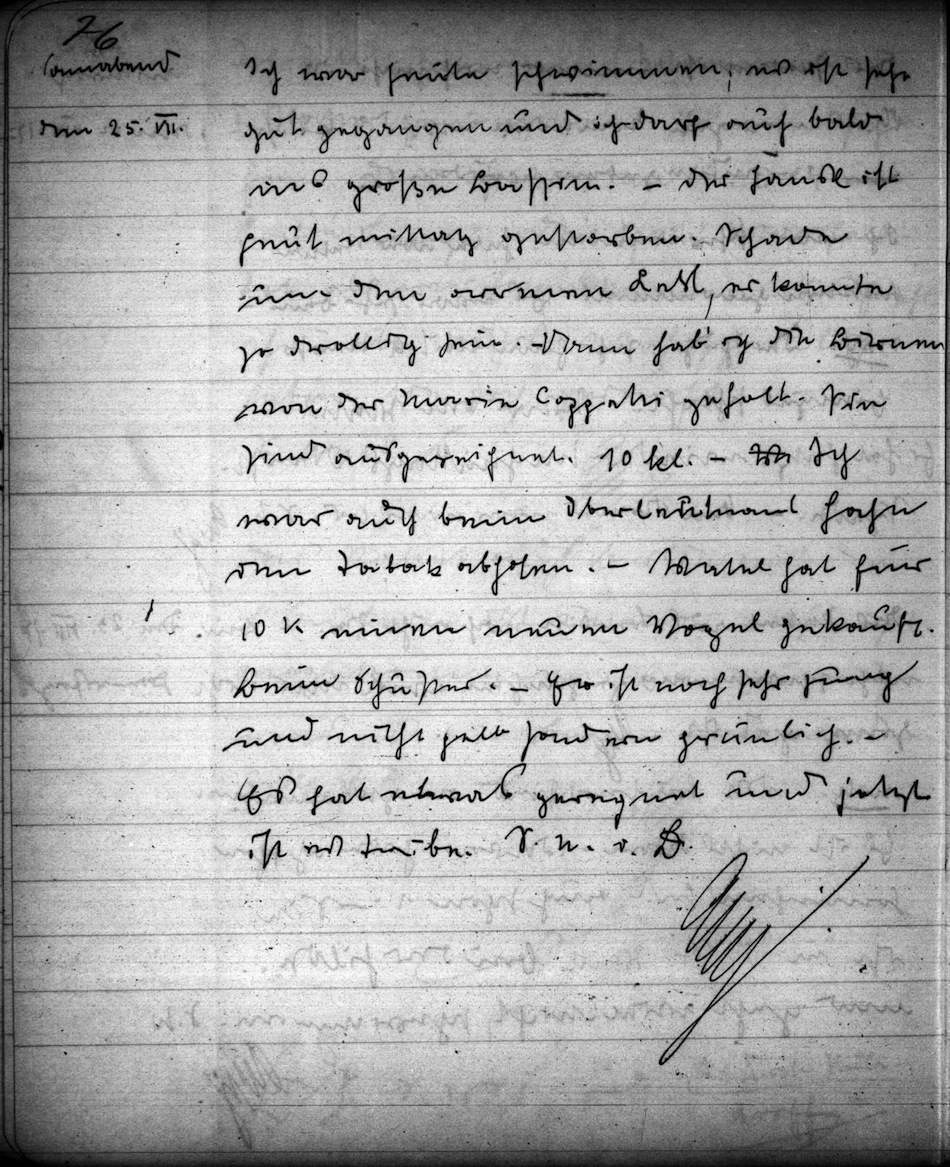 76
Sonnabend
den 25. VII.
Ich war heute schwimmen, es ist sehr
gut gegangen und ich darf auch bald
ins große Bassin. – der Hansl ist
heut mittag gestorben. Schade
um den armen Kerl, er konnte
so drollig sein. – Dann hab ich die Birnen
von der Marie Coppelti geholt. Sie
sind ausgezeichnet. 10 kl. – Ich
war auch beim Oberleutnant Hahn
den Tabak abholen. – Vatel hat für
10 K einen neuen Vogel gekauft.
beim Schuster. – Er ist noch sehr jung
und nicht gelb sondern grünlich. –
Es hat etwas geregnet und jetzt
ist es trübe. S. n. v. D.